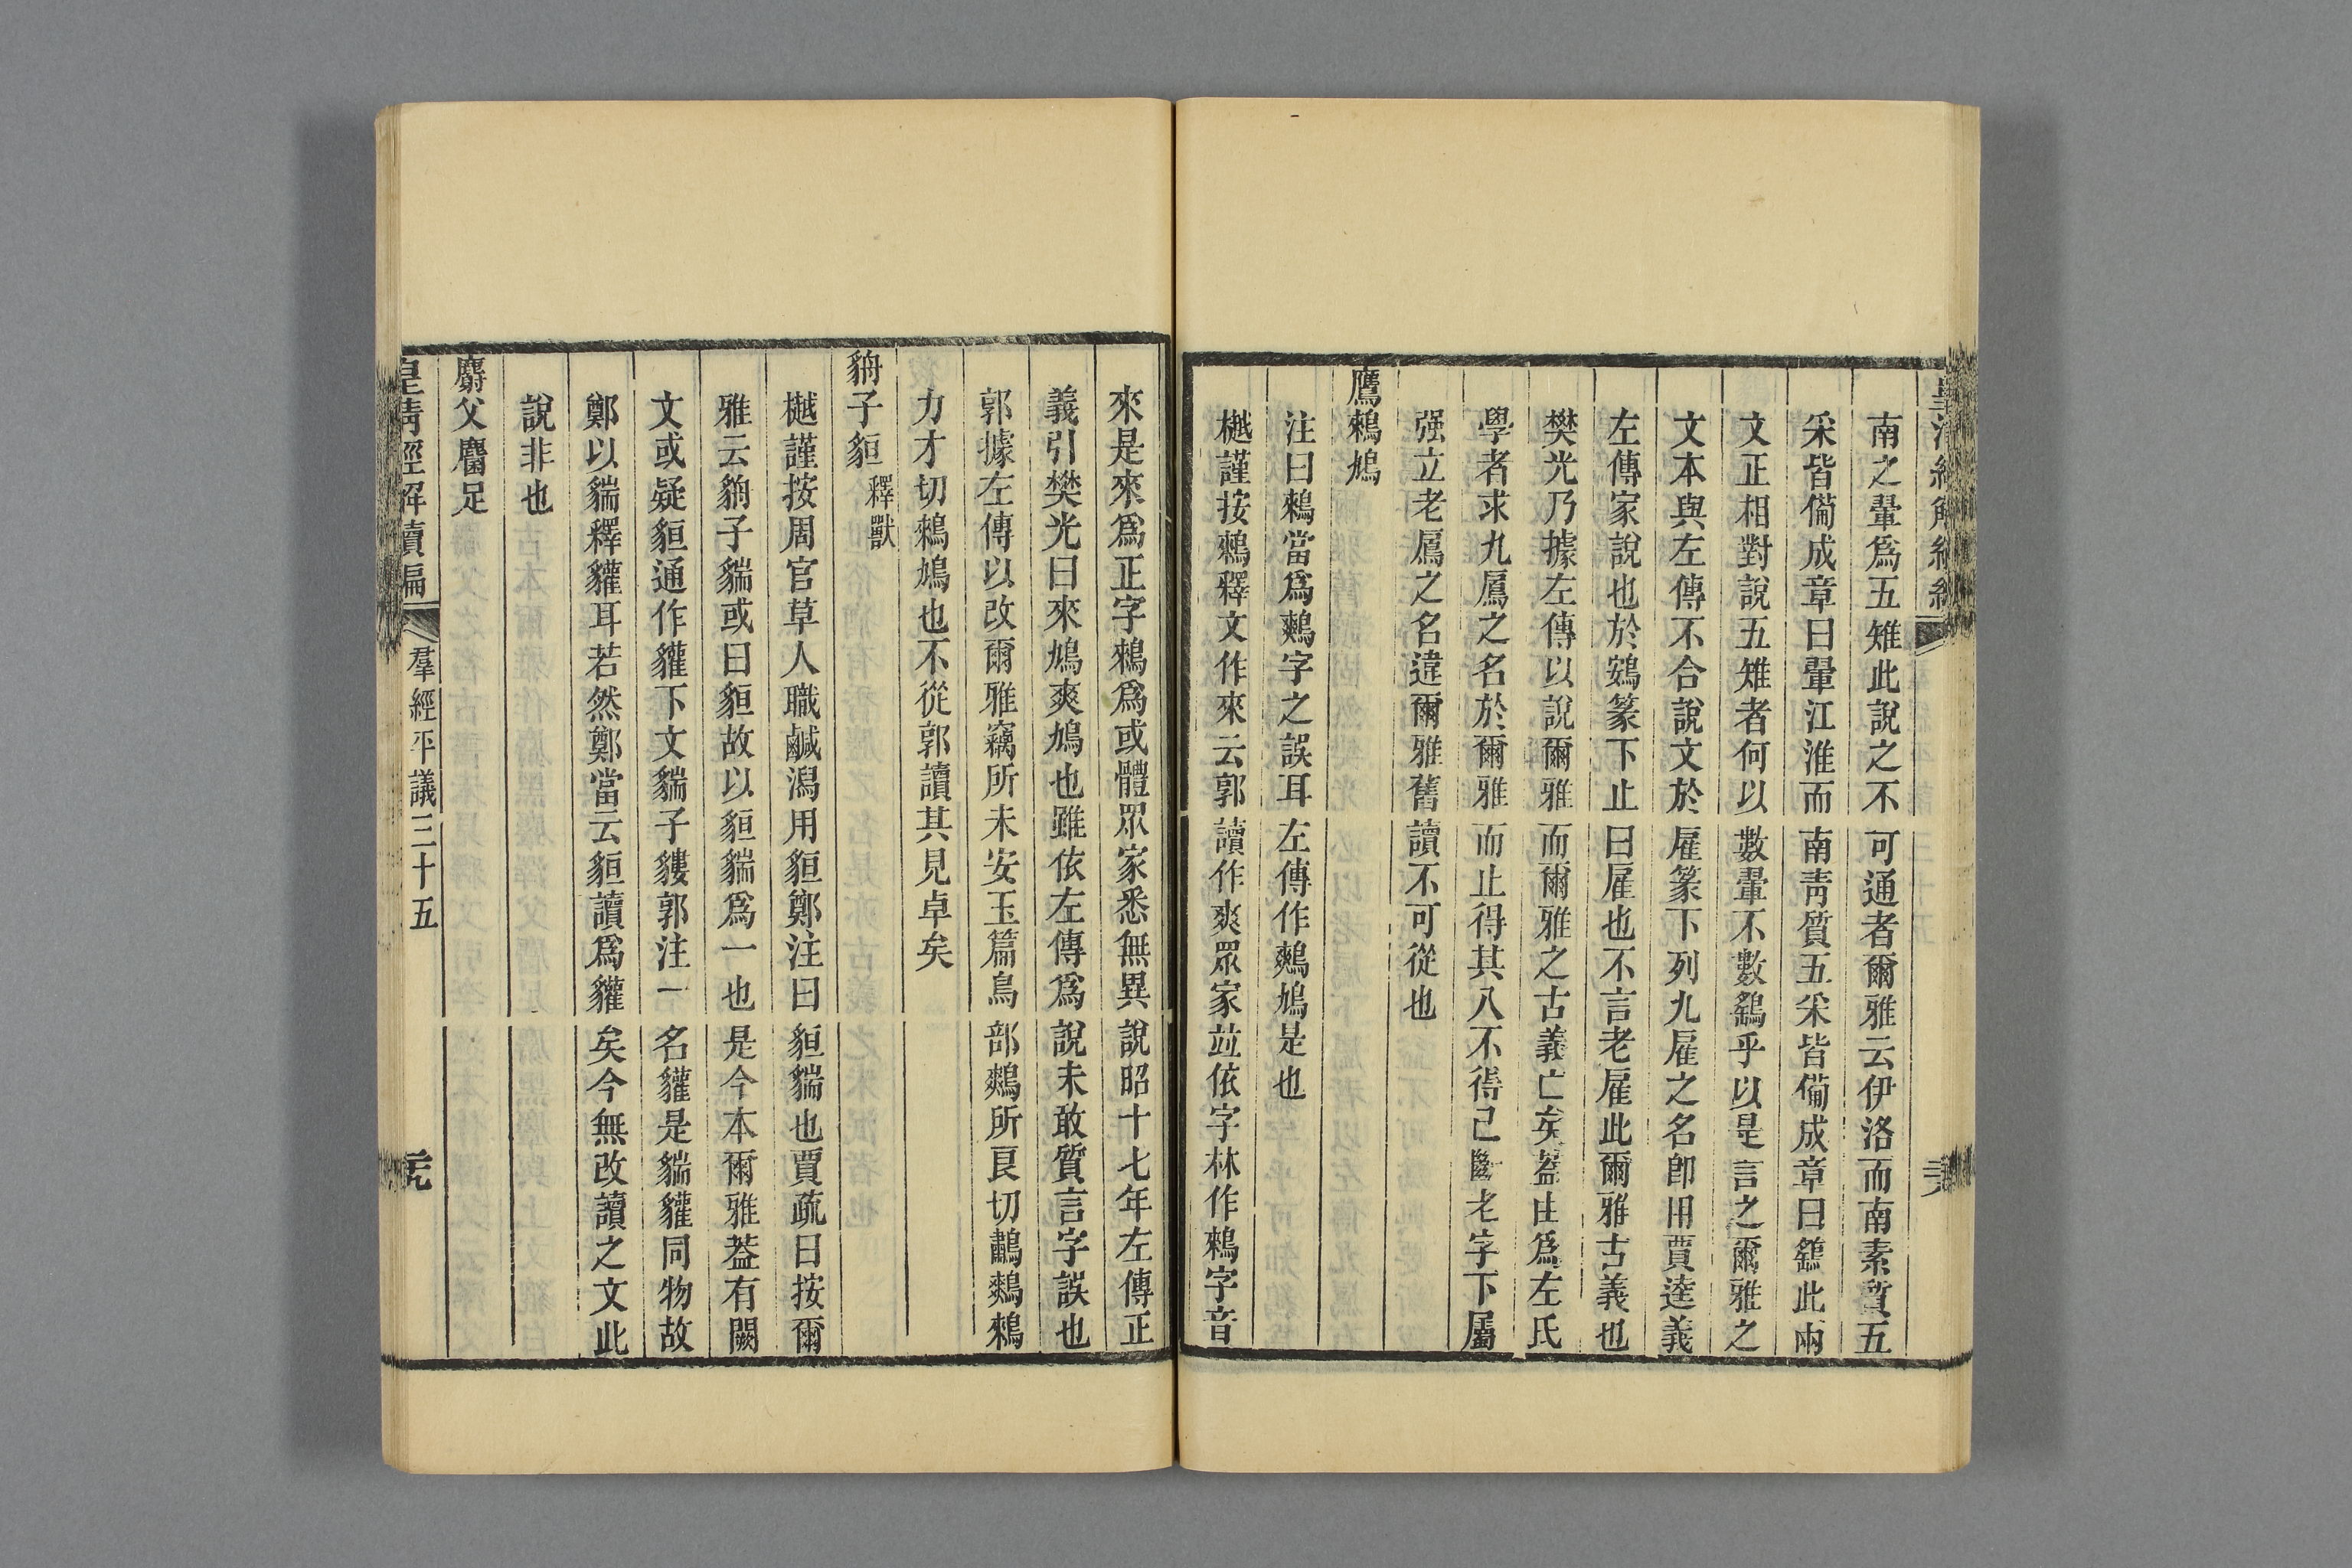 南之翬爲五雉此說之不可通者爾雅云伊洛而南素質五
采皆備成章曰翬江淮而南靑質五采皆備成章曰鷂此兩
文正相對說五雉者何以數翬不數鷂乎以是言之爾雅之
文本與左傳不合說文於雇篆下列九雇之名卽用賈逵義
左傳家說也於鴳篆下止曰雇也不言老雇此爾雅古義也
樊光乃據左傳以說爾雅而爾雅之古義亡矣蓋由爲左氏
學者求九鳸之名於爾雅而止得其八不得已斷老字下屬
强立老鳸之名違爾雅舊讀不可從也
鷹鶆鳩
注曰鶆當爲鷞字之誤耳左傳作鷞鳩是也
樾謹按鶆釋文作來云郭讀作爽眾家竝依字林作鶆字音
來是來爲正字鶆爲或體眾家悉無異說昭十七年左傳正
義引樊光曰來鳩爽鳩也雖依左傳爲說未敢質言字誤也
郭據左傳以改爾雅竊所未安玉篇鳥部鷞所良切鷫鷞鶆
力才切鶆鳩也不從郭讀其見卓矣
貈子貆 釋獸
樾謹按周官草人職鹹潟用貆鄭注曰貆貒也賈疏曰按爾
雅云貈子貒或曰貆故以貆貒爲一也是今本爾雅葢有闕
文或疑貆通作貛下文貒子貗郭注一名貛是貒貛同物故
鄭以貒釋貛耳若然鄭當云貆讀爲貛矣今無改讀之文此
說非也
麝父麕足
皇清經解續編
羣經平議三十五